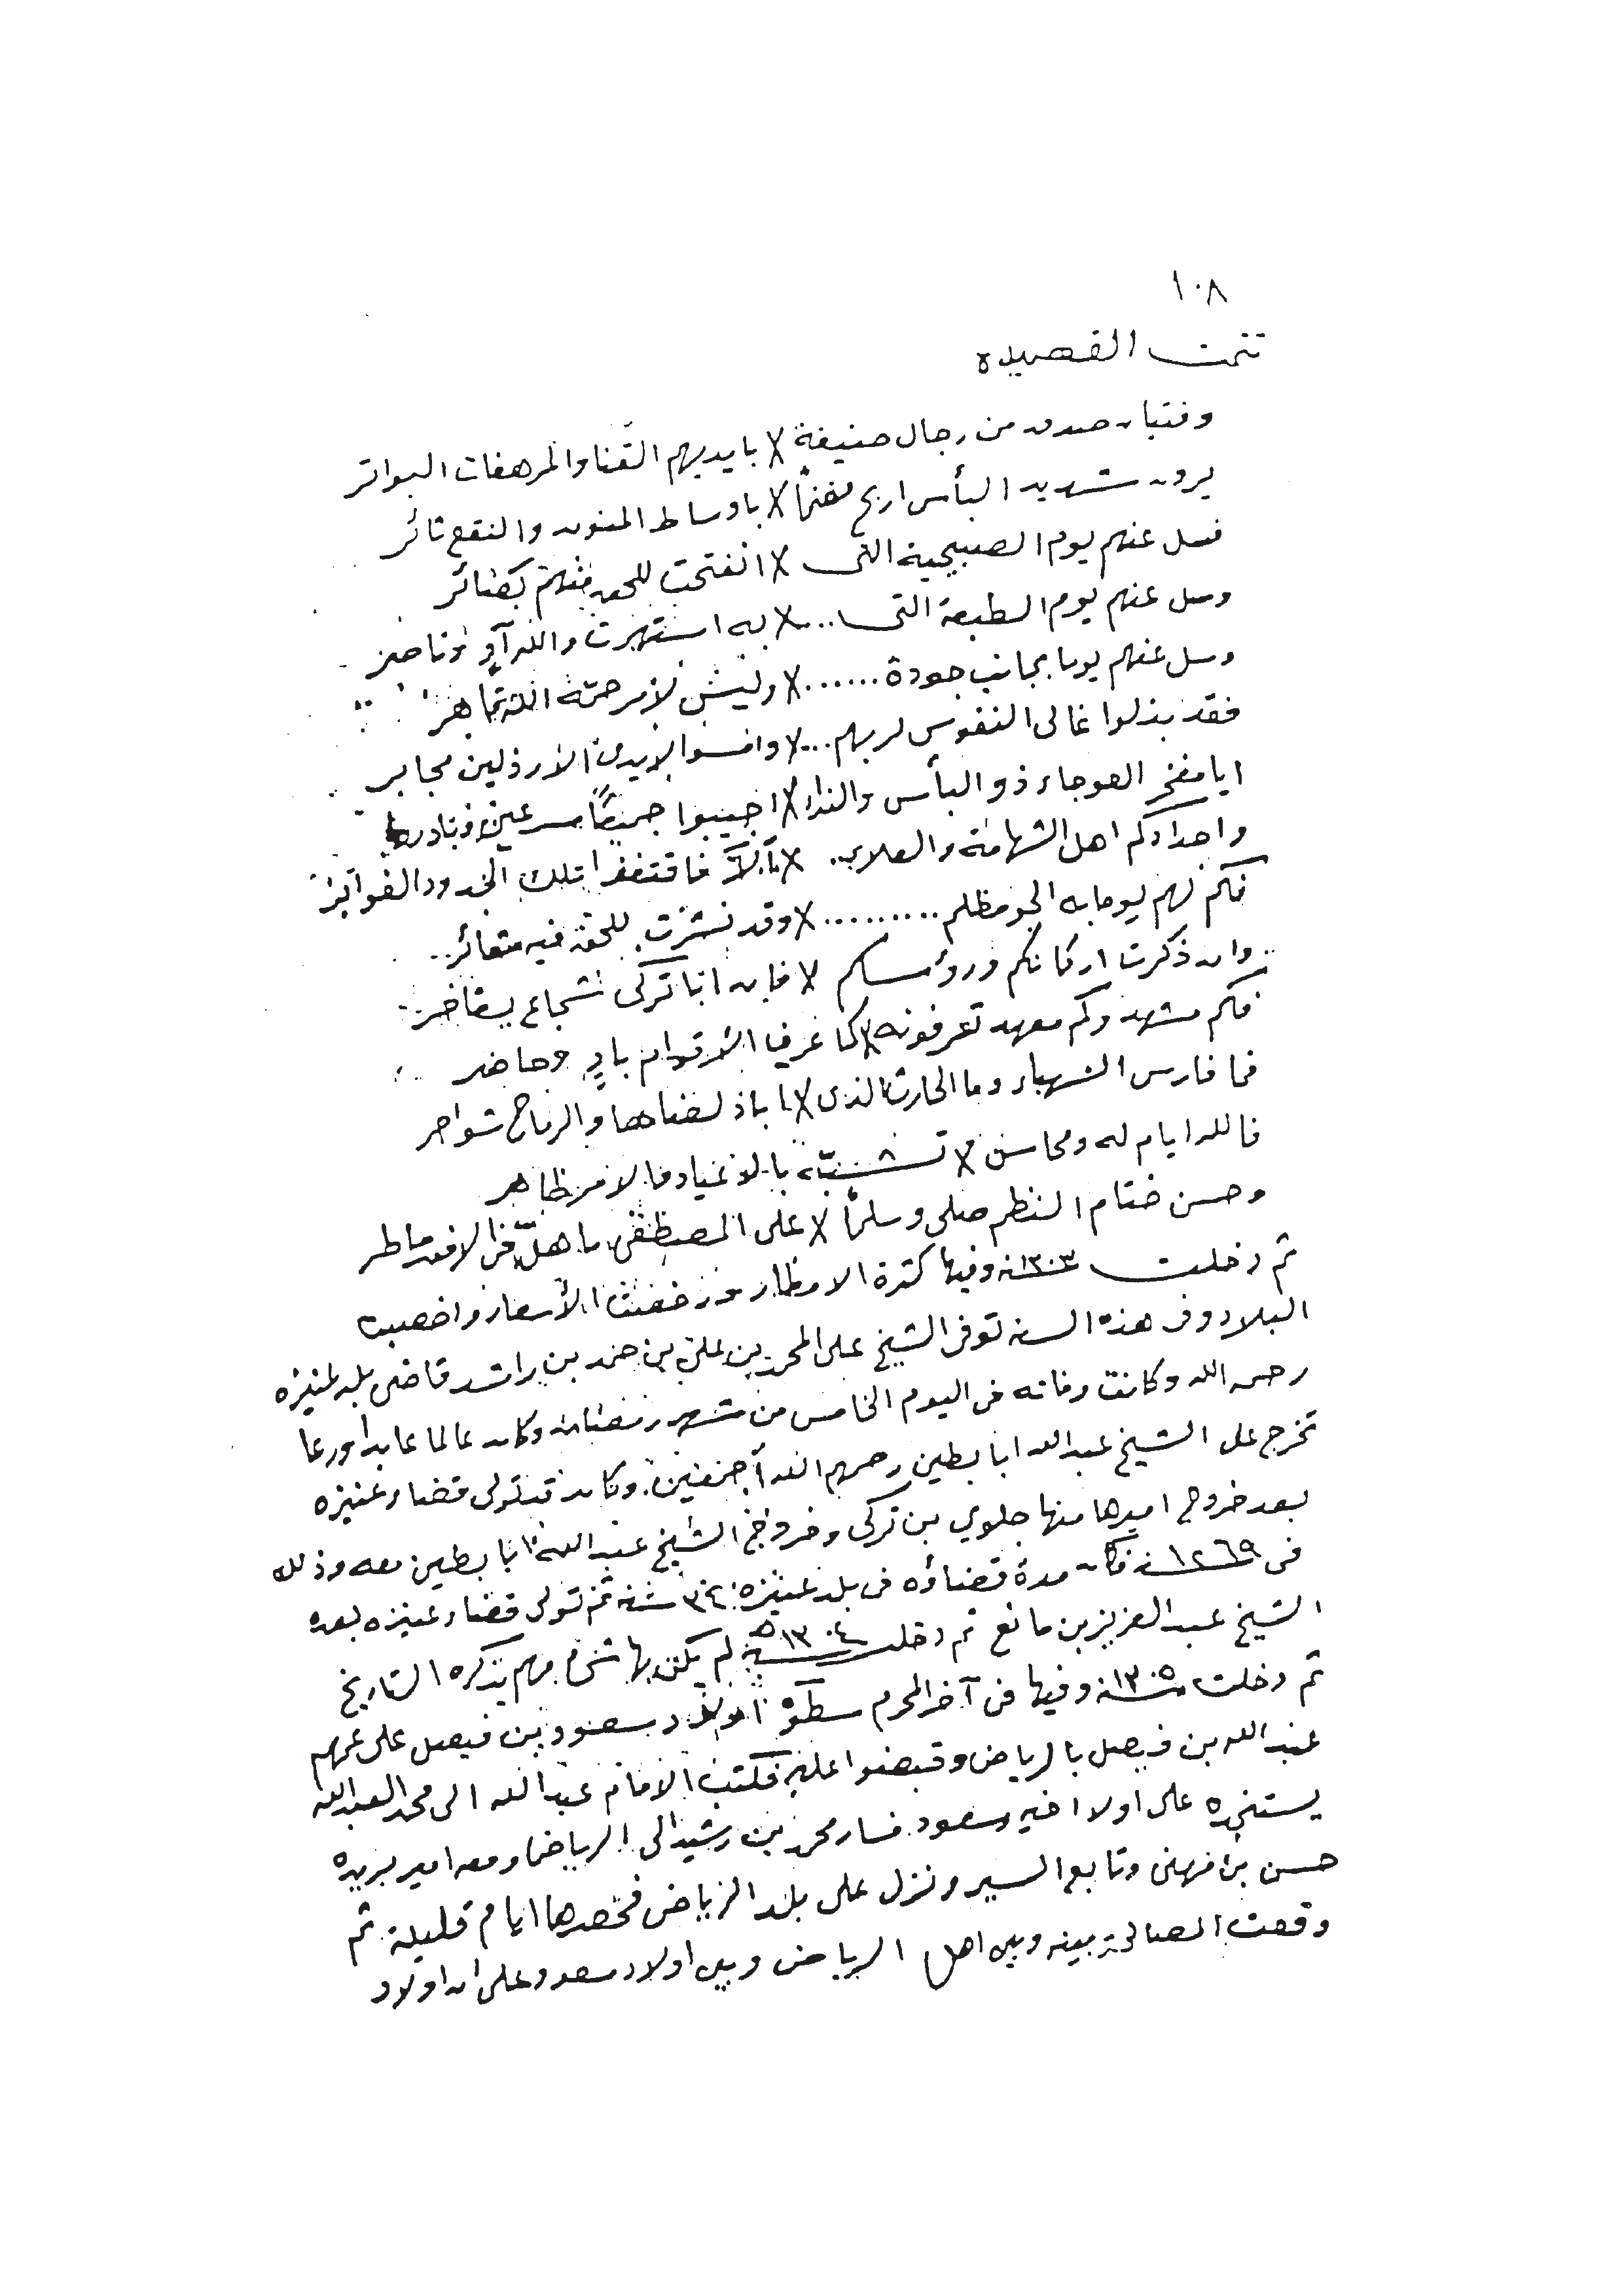 ١٠٨
تتمت القصيده
وفتيان صدق من رجال حنيفة لا بايديهم القنا والمرهفات البواتر
يرون شديد البأس اربح مغنما لا باوساط المنون والنقع ثائر
فسل عنهم يوم الصبيحية التي لا انفتحت للحق منهم بصائر
وسل عنهم يوم الطبعة التي ... لا به اشتهرت والله آوٍ وناصر
وسل عنهم يوما بجانب جودة ...... لا وليس لأمر حمّه الله
فقد بذلوا غالى النفوس لربهم ... لا لايدى الارذلين مجابر
ايا مفخر العوجاء ذو البأس والندا لا اجيبوا جميعًا مسرعين وبادروا
واجدادكم اهل الشهامة والعلا .. لا فاقتفوا تلك الجدود
فكم لهم يوما به الجو مظلم ......... لا وقد نشرت للحق فيه شعائر ..
وان ذكرت اركانكم ورؤساكم لا فان ابا تركى شجاع يفاخر
فكم مشهد وكم معهد تعرفونه لا كما عرف الاقوام بادٍ وحاضر
فما فارس الشهباء وما الحارث الذى لا والرماح شواجر
فالله ايام له ومحاسن لا تشبّه بالاعياد فالامر ظاهر
وحسن ختام النظم صلى وسلما لا على المصطفى ما هلّ فى الافق ماطر
ثم دخلت ١٣٠٣نه وفيها كثرة الامطار ورخصت الأسعار واخصبت
البلاد وفى هذه السنه توفى الشيخ على المحمد بن على بن حمد بن راشد قاضى بلد عنيزه
رحمه الله وكانت وفاته فى اليوم الخامس من شهر رمضان وكان عالما عابدا ورعا
تخرج على الشيخ عبدالله ابا بطين رحمهم الله أجمعين. وكان قد تولى قضاء عنيزه
بعد خروج اميرها منها جلوي بن تركى وخروج الشيخ عبدالله ابا بطين معه وذلك
فى ١٢٦٩نه فكان مدة قضاؤه فى بلد عنيزه ٣٤ سنه ثم تولى قضاء عنيزه بعده
الشيخ عبدالعزيز بن مانع ثم دخلت ١٣٠٤هـ لم يكن بها شىء مهم يذكره التاريخ
ثم دخلت ١٣٠٥نه وفيها فى آخر المحرم سطوْ اولاد سعود بن فيصل على عمهم
عبدالله بن فيصل بالرياض وقبضوا عليه فكتب الامام عبدالله الى محمد العبدالله
يستنجده على اولا اخيه سعود فسار محمد بن رشيد الى الرياض ومعه امير بريده
حسن بن مهنى وتابع السير ونزل على بلد الرياض فحصرها ايام قليلة ثم
وقعت المصالحة بينه وبين اهل الرياض وبين اولاد سعود وعلى ان اولاد